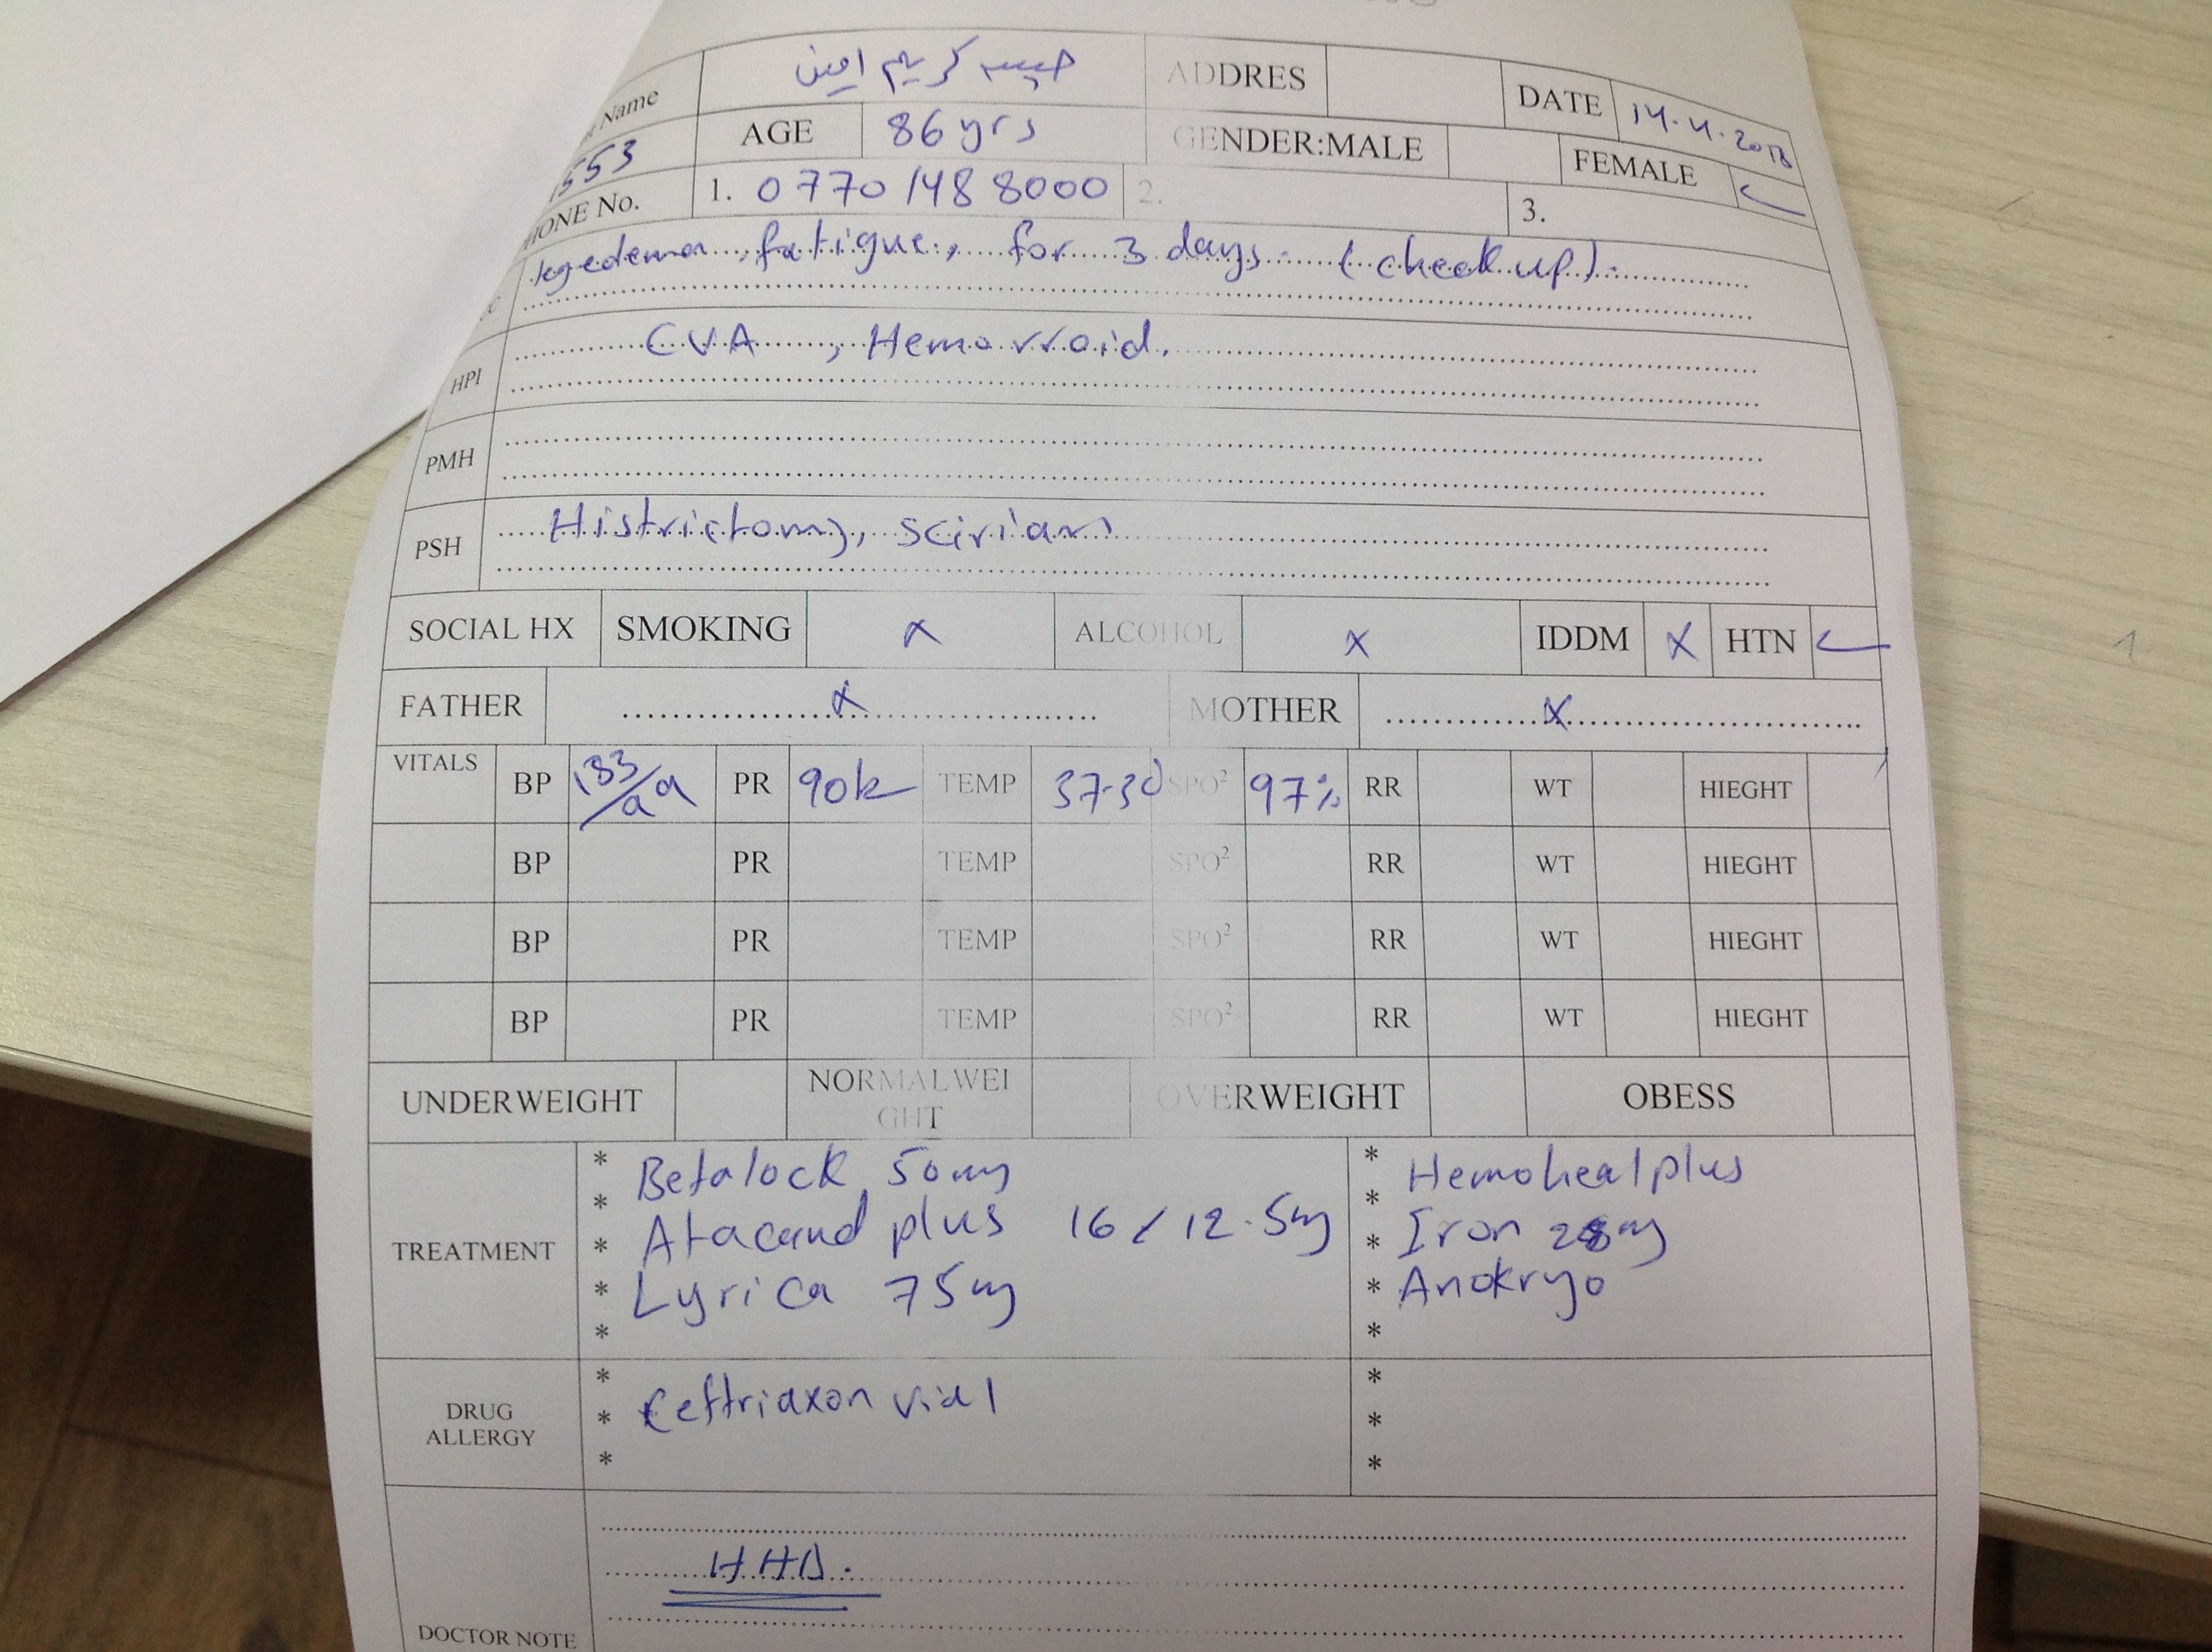 Name حبيبه كريم امين ADDRES DATE 14.4.2018
553 AGE 86 yrs GENDER:MALE FEMALE
HONE No. 1. 0770 148 8000 2. 3.
legedema, fatigue, for 3 days. (check up).
HPI CVA, Hemorroid.
PMH
PSH Histrictomy, scirian
SOCIAL HX SMOKING x ALCOHOL x IDDM x HTN
FATHER x MOTHER x
VITALS BP PR 90 TEMP 37.3 SPO² 97% RR WT HIEGHT
BP PR TEMP SPO² RR WT HIEGHT
BP PR TEMP SPO² RR WT HIEGHT
BP PR TEMP SPO² RR WT HIEGHT
UNDERWEIGHT NORMALWEI OVERWEIGHT OBESS
GHT
* Betalock 50mg * Hemohealplus
* Atacand plus 16/12.5mg * Iron
TREATMENT * Lyrica 75mg * Anokryo
* *
* *
DRUG * Ceftriaxon vial *
ALLERGY * *
* *
H.H.D.
DOCTOR NOTE